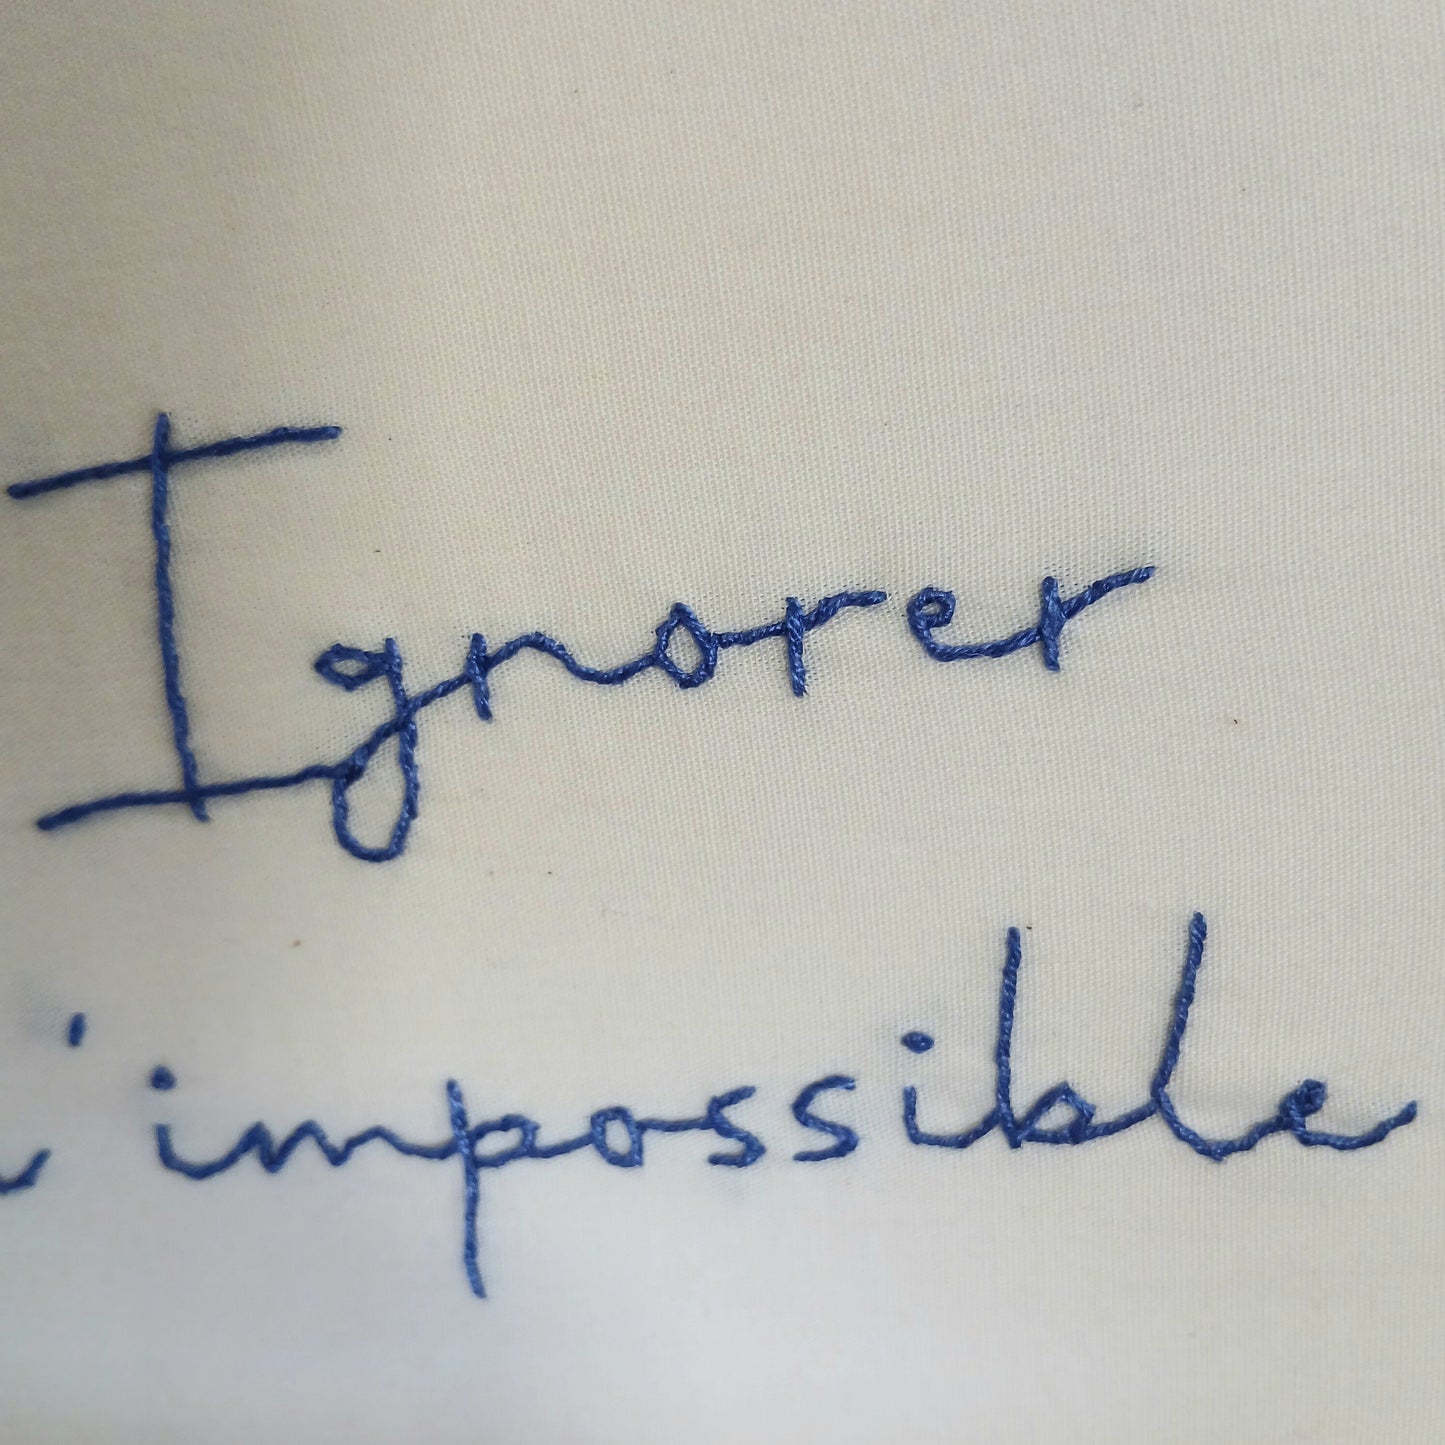 Ignorer
'impossible